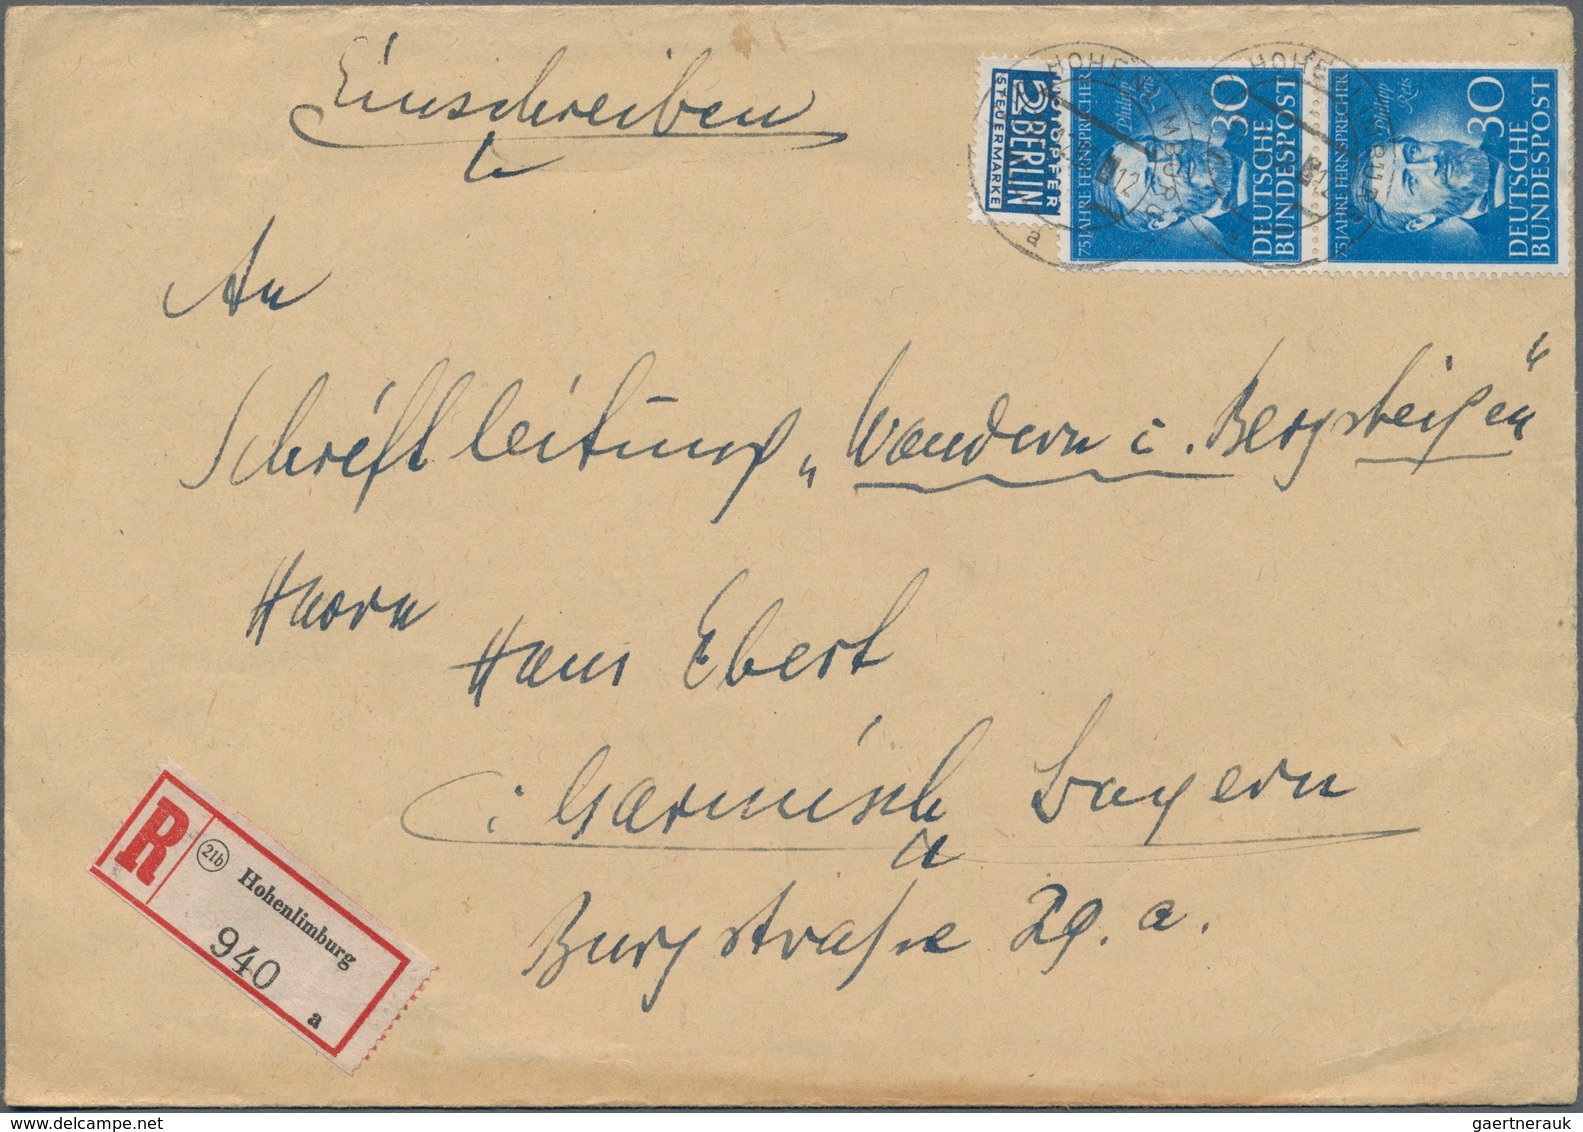 Einschreiben
NOTOPFER
2 BERLIN
STEUERMARKE
HOHENLIMBURG
a
12
75 JAHRE FERNSPRECHER
Philipp
Reis
30
DEUTSCHE
BUNDESPOST
HOHENLIMBURG
a
12
75 JAHRE FERNSPRECHER
Philipp
Reis
30
DEUTSCHE
BUNDESPOST
An
Schriftleitung „Wandern i. Bergsteigen“
Herrn
Hans Ebert
Garmisch Bayern
Burgstraße 29. a.
R
21b
Hohenlimburg
940
a
www.delcampe.net
gaertnerauk